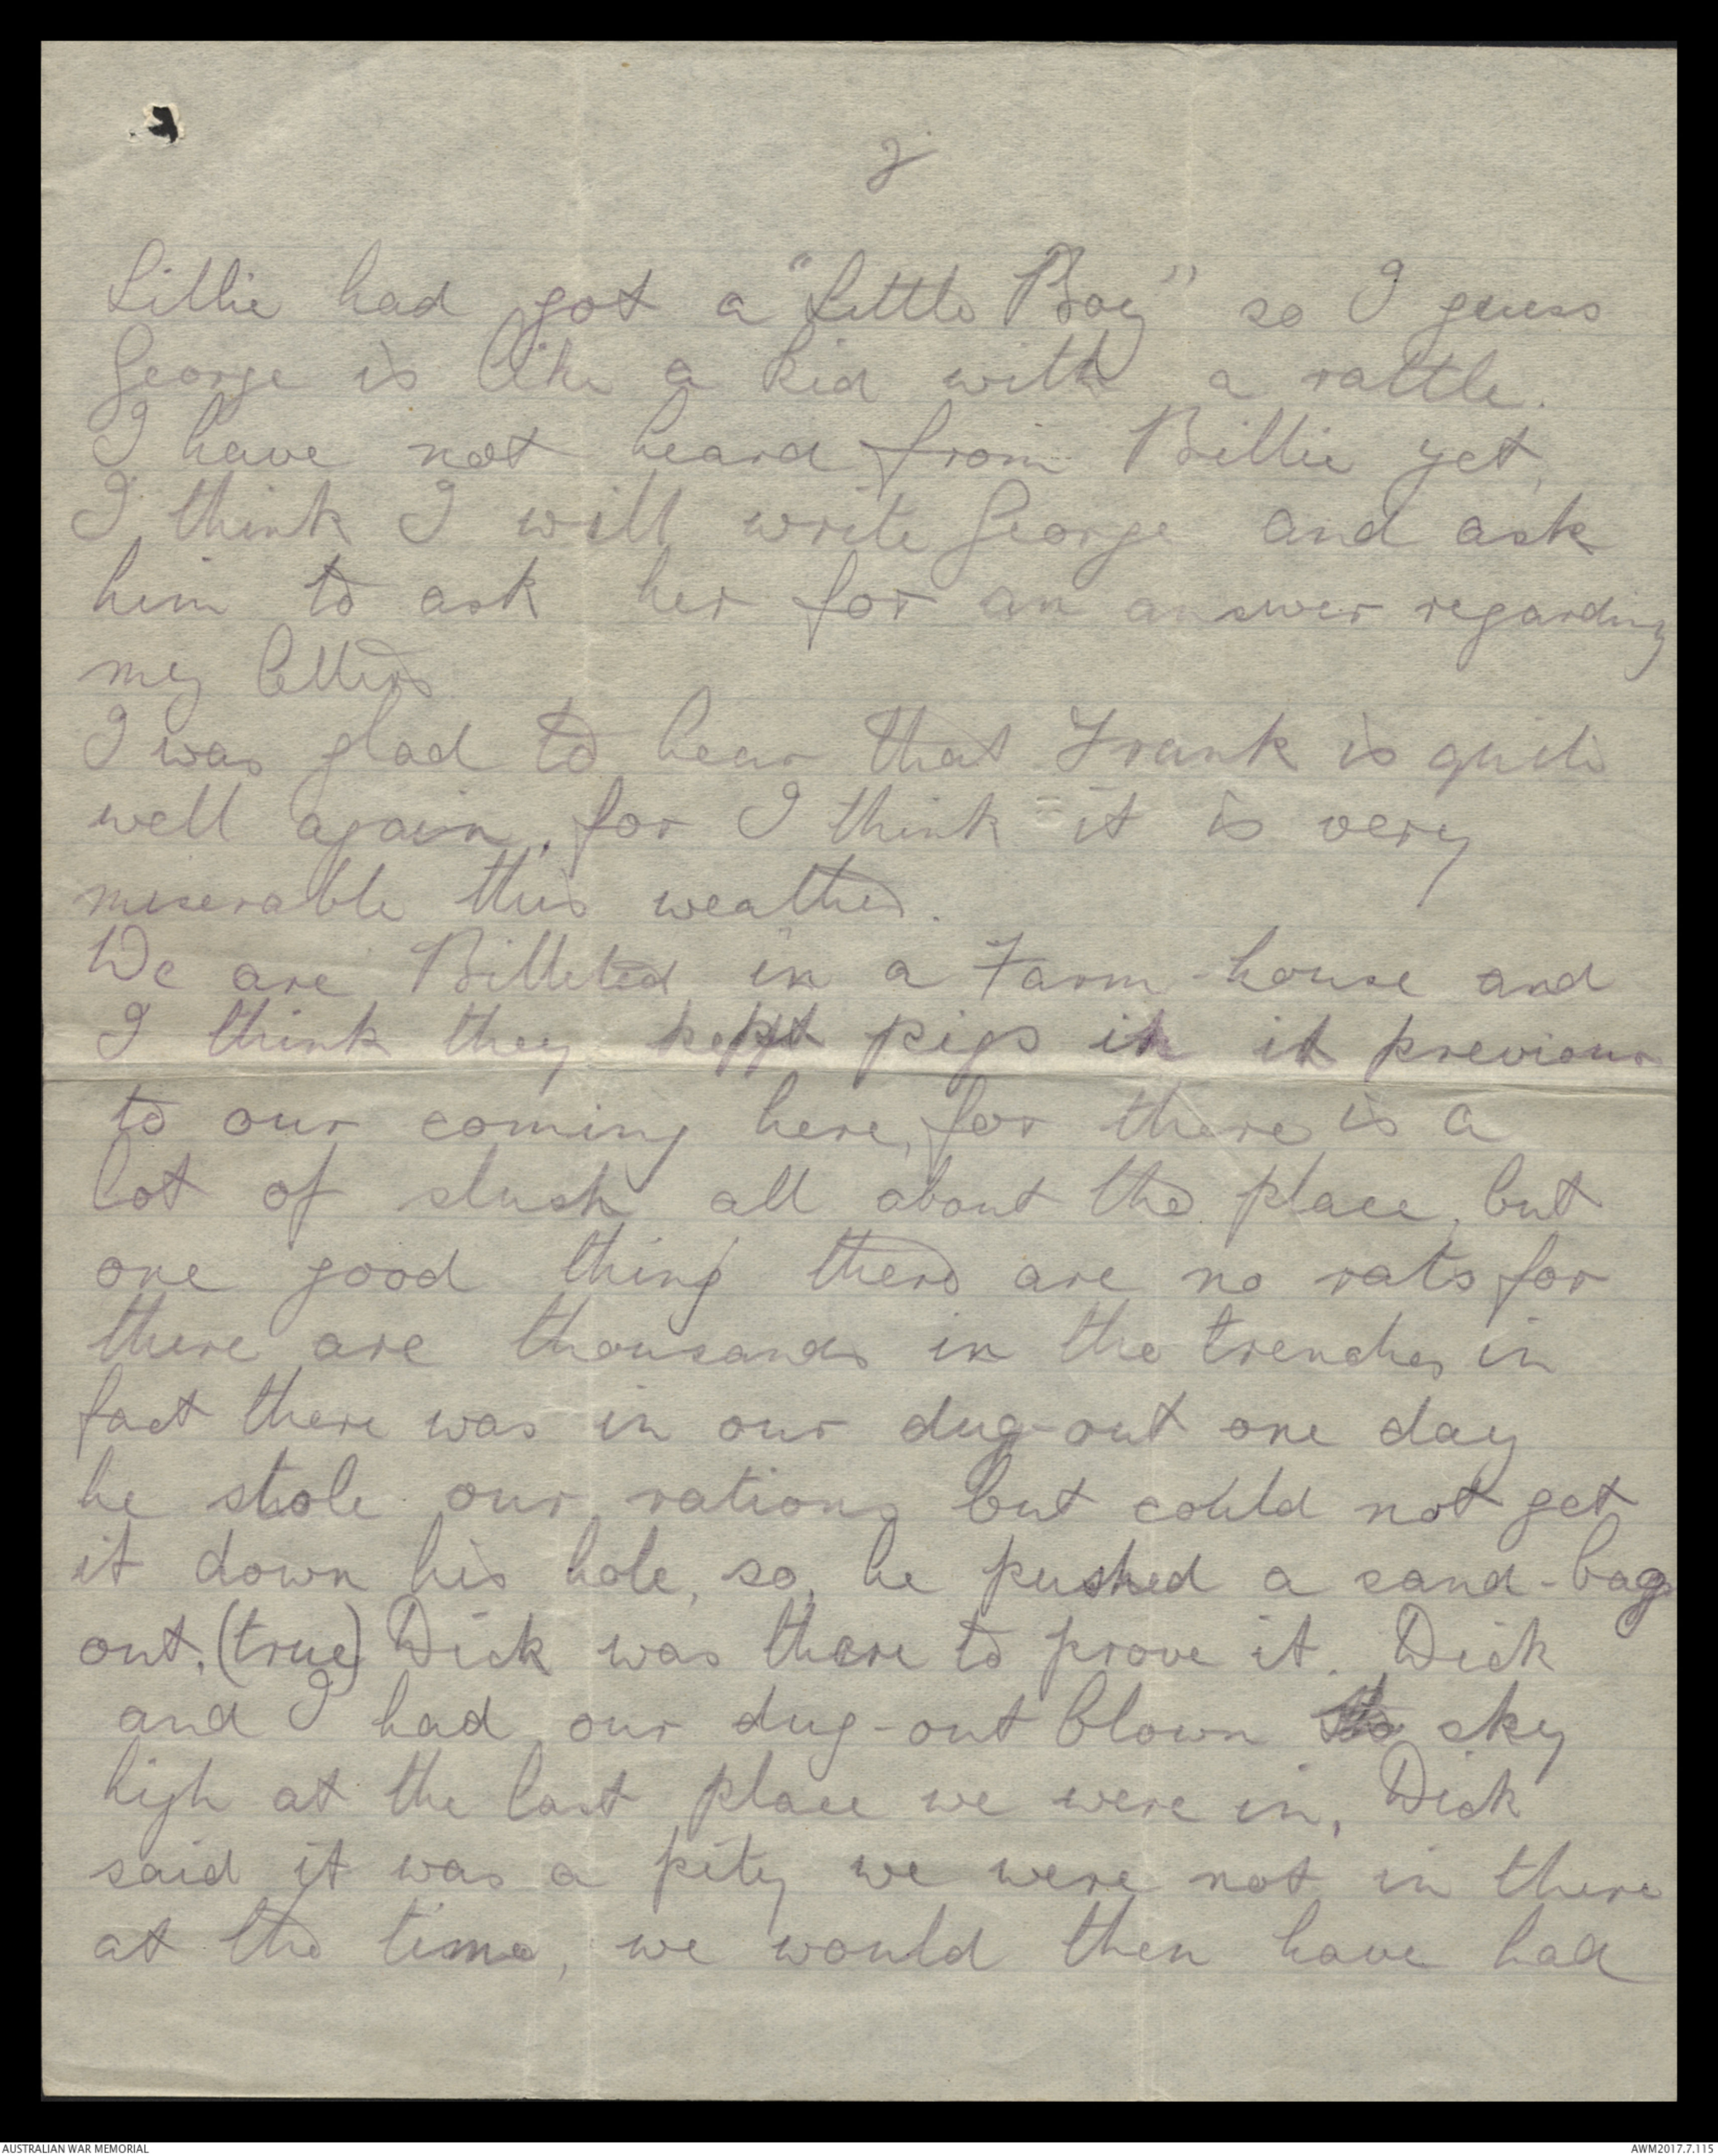 2
Lillie had got a "Little Boy" so I guess
George is like a kid with a rattle.
I have not heard from Billie yet,
I think I will write George and ask
him to ask her for an answer regarding
my letters
I was glad to hear that Frank is quite
well again, for I think it is very
miserable this weather.
We are Billeted in a Farm-house and
I think they kept pigs in it previous
to our coming here, for there is a
lot of slush all about the place, but
one good thing there are no rats for
there are thousands in the trenches in
fact there was in our dug-out one day
he stole our rations but could not get
it down his hole, so, he pushed a sand-bag
out. (true) Dick was there to prove it. Dick
and I had our dug-out blown sky
high at the last place we were in, Dick
said it was a pity we were not in there
at the time, we would then have had
AUSTRALIAN WAR MEMORIAL
AWM2017.7.115